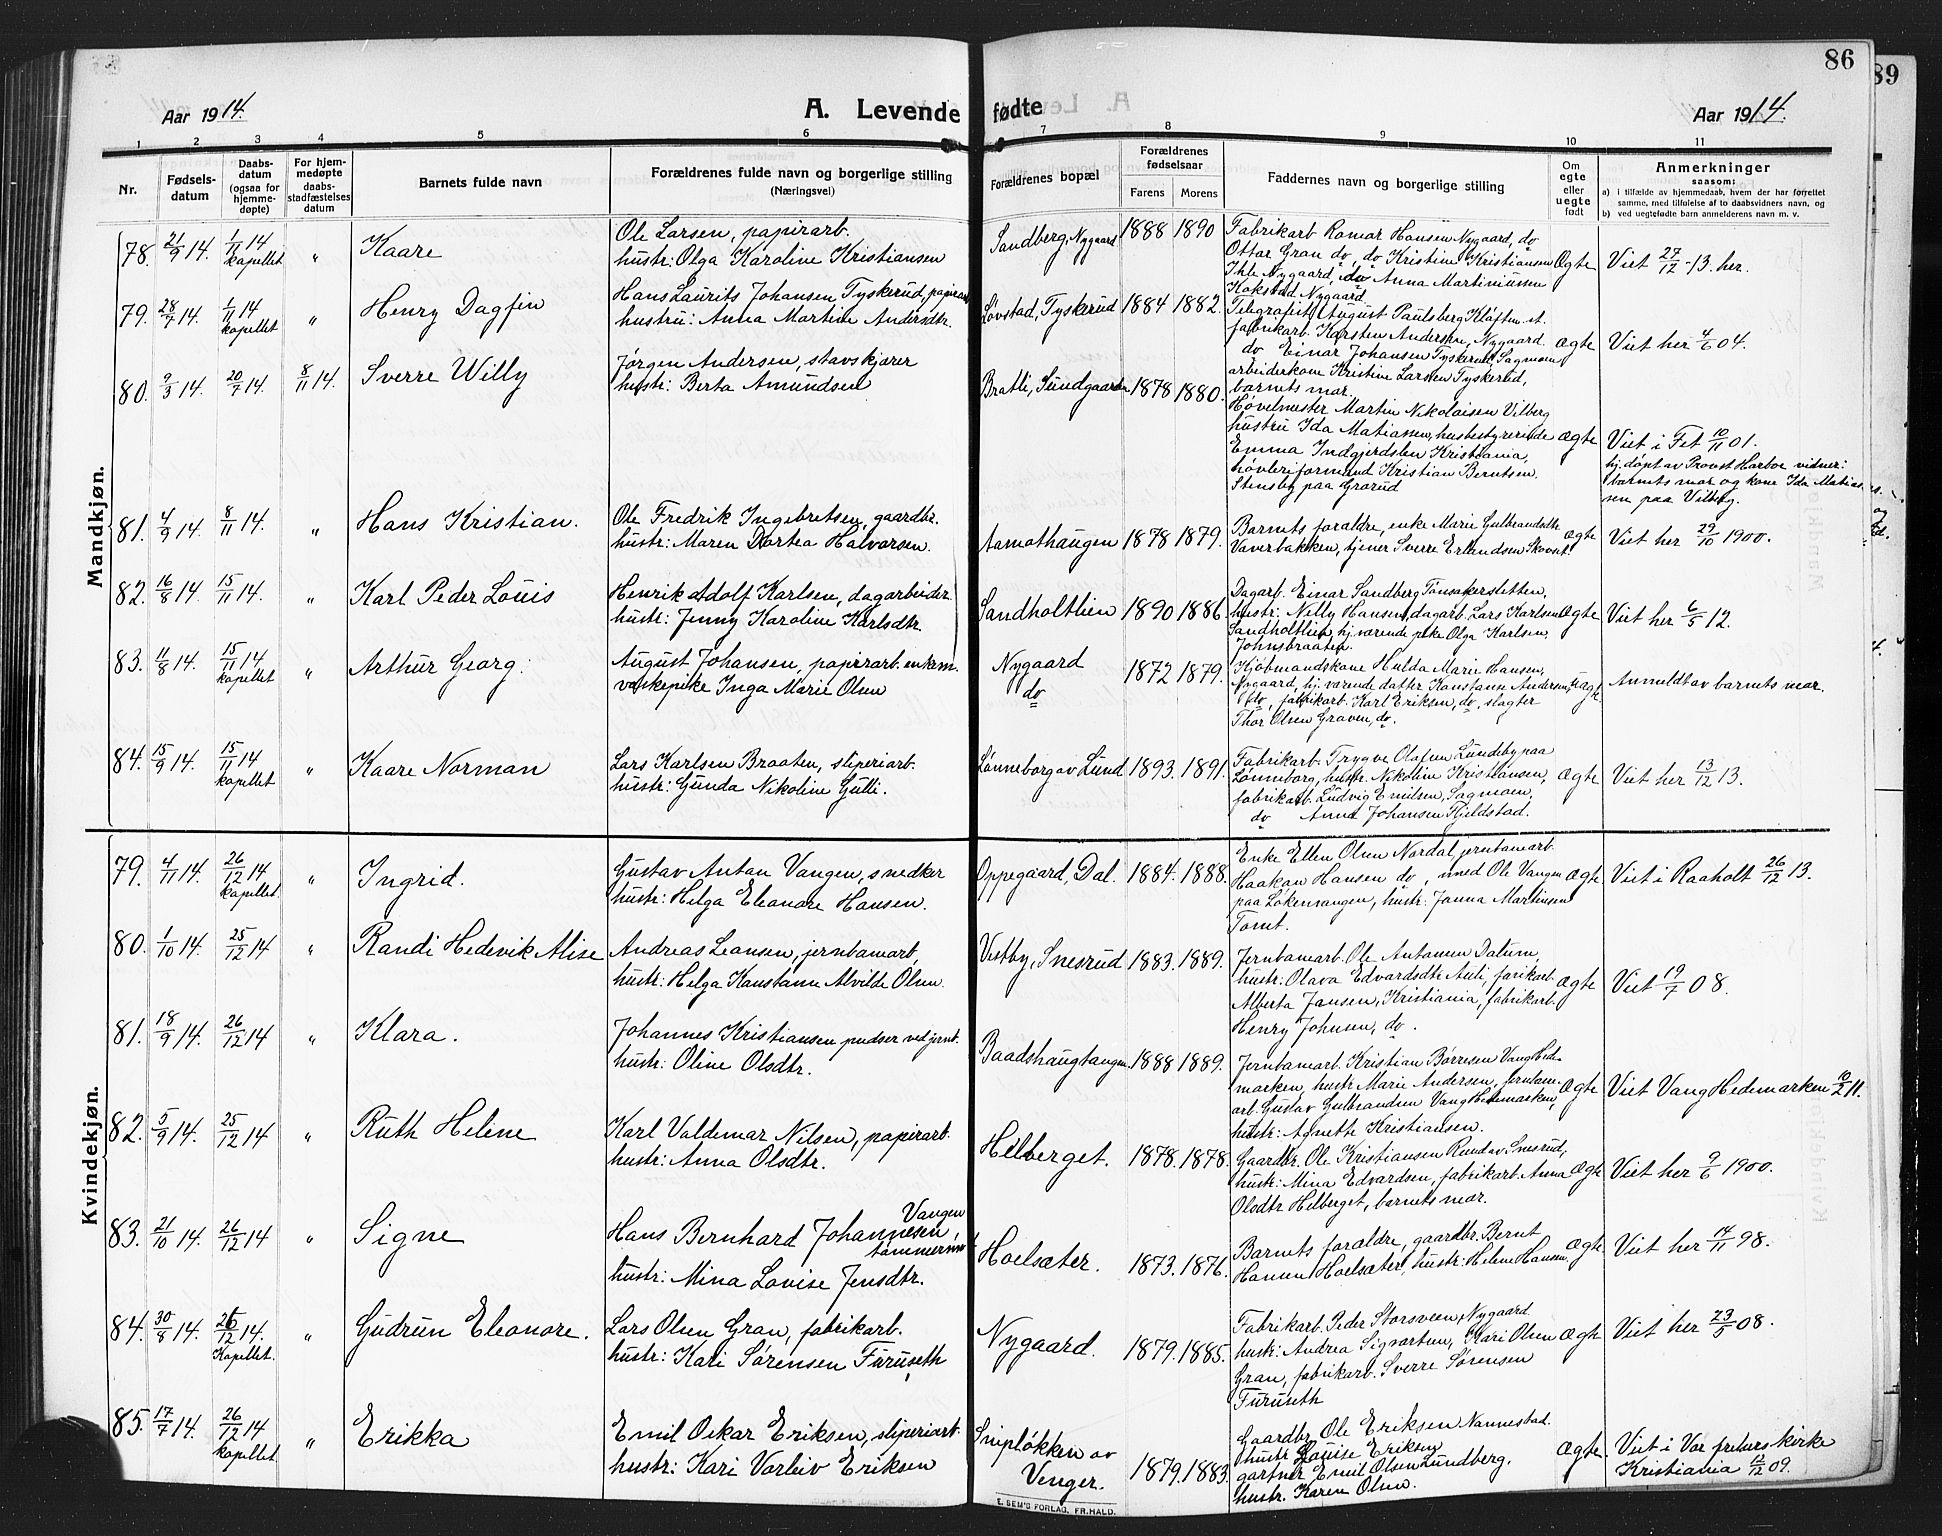 86
89
Aar 1914.
A. Levende fødte
Aar 1914.
1 2 3 4 5 6 7 8 9 10 11
Nr.
Fødsels-
datum
Daabs-
datum
(ogsaa for
hjemme-
døpte)
For hjem-
medøpte
daabs-
stadfæstelses
datum
Barnets fulde navn
Forældrenes fulde navn og borgerlige stilling
(Næringsvei)
Forældrenes bopæl
Forældrenes
fødselsaar
Farens Morens
Faddernes navn og borgerlige stilling
Om
egte
eller
uegte
født
Anmerkninger
saasom:
a) i tilfælde av hjemmedaab, hvem der har forrettet
samme, med tilføielse af to daabsvidners navn, og
b) ved uegtefødte barn anmelderens navn m. v.
Mandkjøn.
78. 21/9 14. 1/11 14 kapellet " Kaare
Ole Larsen, papirarb.
hustr: Olga Karoline Kristiansen
Sandberg, Nygaard 1888 1890
Fabrikarb Ramar Hansen Nygaard, do
Ottar Gran do, do Kristine Kristiansen
Ihle Nygaard, do Anna Martiniussen
Kokstad Nygaard
Ægte Viet 27/12 -13. her.
79. 28/7 14. 1/11 14 kapellet " Henry Dagfin
Hans Laurits Johansen Tyskerud, papirarb
hustru: Anna Martine Andersdtr.
Løvstad, Tyskerud 1884 1882.
Telegrafist August Paulsberg Kløften st.
fabrikarb. Karsten Andersen, Nygaard.
do Einar Johansen Tyskerud Sagmoen
arbeiderkone Kristine Larsen Tyskerud,
barnets mor.
ægte Viet her 4/6 04.
80. 9/3 14. 20/7 14. 8/11 14. Sverre Willy
Jørgen Andersen, stavskjærer
hustr: Berta Amundsen
Bratli, Sundgaarden 1878 1880.
Høvelmester Martin Nikolaisen Vilberg
hustru Ida Matiassen, husbestyrerinde
Emma Indgjerdslen Kristiania,
høvleriformand Kristian Berntsen
Stensby paa Grorud
ægte Viet i Fet 10/11 01.
hj. døpt av Provst Harboe vidner:
barnets mor og kone Ida Matias-
sen paa Vilberg.
81. 4/9 14. 8/11 14. " Hans Kristian.
Ole Fredrik Ingebretsen, gaardbr.
hustr: Maren Dortea Halvorsen.
Aamothaugen 1878 1879.
Barnets forældre, enke Marie Gulbrandsdtr
Vaverbakken, tjener Sverre Erlandsen Skovst
ægte Viet her 29/10 1900.
82. 16/8 14. 15/11 14. " Karl Peder Louis
Henrik Adolf Karlsen, dagarbeider
hustr: Jenny Karoline Karlsdtr.
Sandholtlien 1890 1886
Dagarb. Einar Sandberg Tønsakersletten,
hustr: Nelly Hansen, dagarb. Lars Karlsen
Sandholtlien, hj. værende pike Olga Karlsen,
Johnsbraaten.
Ægte Viet her 6/5 12.
83. 11/8 14. 15/11 14 kapellet " Arthur Georg.
August Johansen, papirarb. enkem.
vaskepike Inga Marie Olsen
Nygaard
do
1872 1879.
Kjøbmandskone Hulda Marie Hansen,
Nygaard, hj. værende datter Konstanse Andersen,
do, fabrikarb. Karl Eriksen, do, slagter
Thor Olsen Graven, do.
Uægte. Anmeldt av barnets mor.
84. 15/9 14. 15/11 14 kapellet " Kaare Norman
Lars Karlsen Braaten, sliperiarb.
hustr: Gunda Nikoline Gulli.
Lønneborg av Lund 1893. 1891.
Fabrikarb. Trygve Olafsen Lundeby paa
Lønneborg, hustr. Nikoline Kristiansen,
fabrikarb. Ludvig Emilsen, Sagmoen,
do Anna Johansen Kjeldstad.
ægte Viet her 13/12 13.
Kvindekjøn.
79. 4/11 14. 26/12 14 kapellet. " Ingrid.
Gustav Anton Vangen, snedker
hustr: Helga Eleonore Hansen.
Oppegaard, Dal. 1884. 1888.
Enke Ellen Olsen Nordal, jernbanearb.
Haakon Hansen do, smed Ole Vangen
paa Løkensvangen, hustr: Janna Martinsen
Tomt.
Ægte Viet i Raaholt 26/12 13.
80. 1/10 14. 25/12 14 " Randi Hedevik Alise
Andreas Leansen, jernbanearb,
hustr: Helga Konstanse Alvilde Olsen.
Vestby, Snesrud 1883. 1889.
Jernbanearb. Ole Antonsen Dalum,
hustr: Olava Edvardsdtr Auli, farikarb.
Alberta Jansen, Kristiania, fabrikarb.
Henry Johnsen, do.
ægte Viet 19/7 08.
81. 18/9 14. 26/12 14 " Klara.
Johannes Kristiansen pudser ved jernb.
hustr: Oline Olsdtr.
Baadshaugtangen 1888 1889.
Jernbanearb. Kristian Børresen Vang Hede-
marken, hustr. Marie Andersen, jernbane-
arb. Gustav Gulbrandsen Vang Hedemarken,
hustr: Agnette Kristiansen.
Ægte Viet Vang Hedemarken 10/2 11.
82. 5/9 14. 25/12 14 " Ruth Helene
Karl Valdemar Nilsen, papirarb.
hustr: Anna Olsdtr.
Helberget. 1878. 1878.
Gaardbr. Ole Kristiansen Rud av Snesrud,
hustr: Mina Edvardsen, fabrikarb. Anna
Olsdtr Helberget, barnets mor.
Ægte Viet her 9/6 1900.
83. 21/10 14. 26/12 14 " Signe
Hans Bernhard Johannesen Vangen,
tømmermd
hustr: Mina Lovise Jensdtr.
Hoelsæter. 1873. 1876.
Barnets forældre, gaardbr. Bernt
Hansen Hoelsæter, hustr: Helene Hansen,
ægte Viet her 14/11 98.
84. 30/8 14. 26/12 14. Kapellet. " Gudrun Eleonore.
Lars Olsen Gran, fabrikarb.
hustr: Kari Sørensen Furuseth
Nygaard. 1879. 1885.
Fabrikarb. Peder Storsveen, Nygaard
hustr: Andrea Sigvartsen, Kari Olsen
Gran, fabrikarb. Sverre Sørensen
Furuseth
ægte Viet her 23/5 08.
85. 17/7 14. 26/12 14 kapellet " Erikka
Emil Oskar Eriksen, sliperiarb.
hustr: Kari Vorleiv Eriksen
Sniploøkken av
Venger.
1879. 1883.
Gaardbr. Ole Eriksen Nannestad.
hustr Louise Eriksen
gartner Emil Olsen Lundberg,
hustr. Karen Olsen.
ægte. Viet i Vor frelsers kirke
Kristiania 12/12 09.
E. SEM'S FORLAG, FR.HALD.